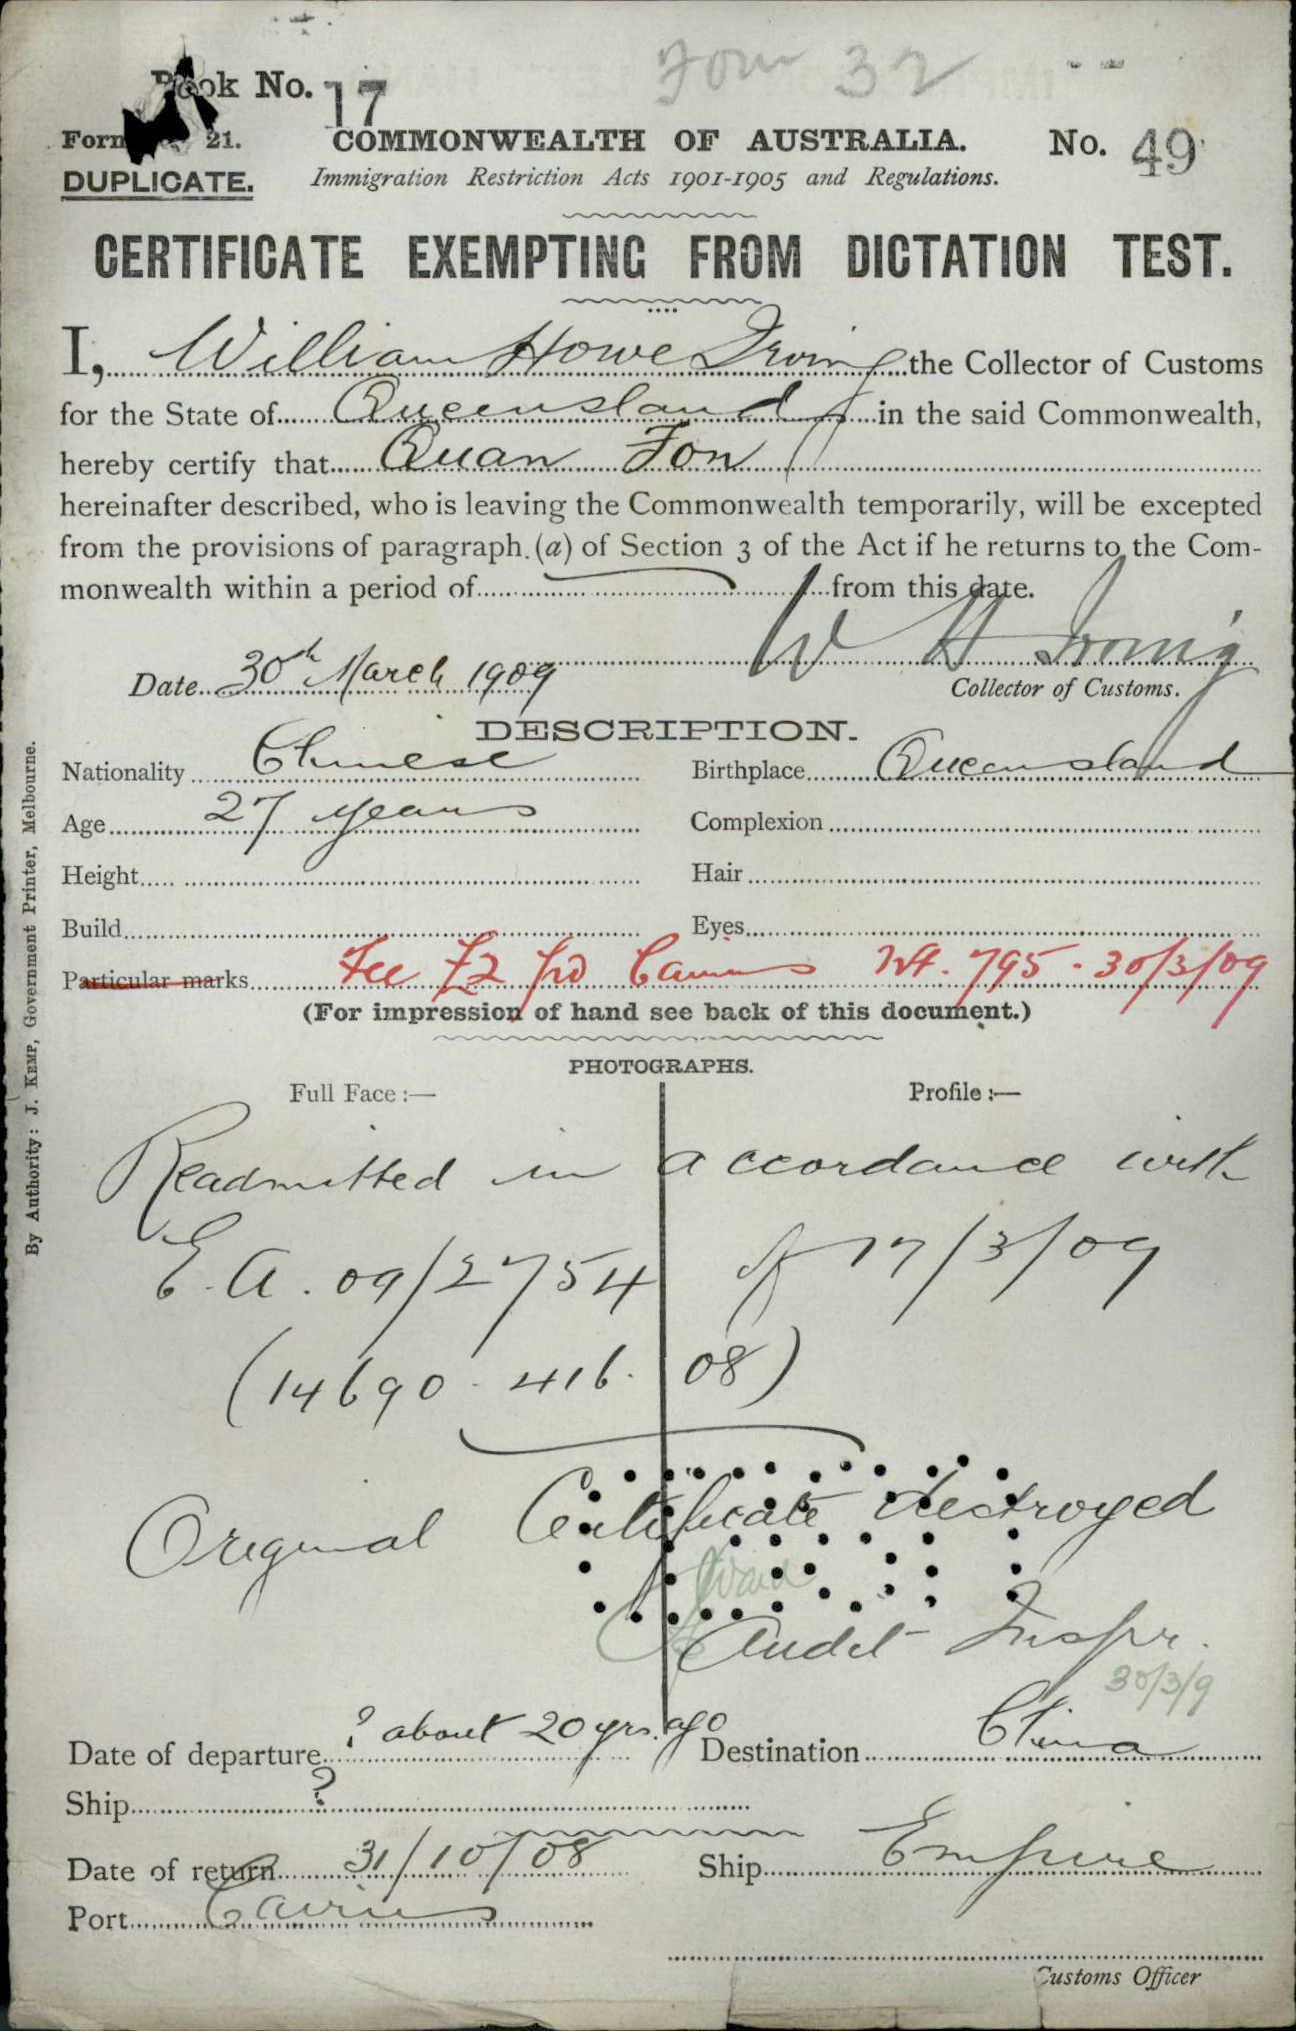 Fon 32
Book No. 17
Form 21. COMMONWEALTH OF AUSTRALIA. No. 49
DUPLICATE. Immigration Restriction Acts 1901-1905 and Regulations.
CERTIFICATE EXEMPTING FROM DICTATION TEST.
I, William Howe Irving the Collector of Customs
for the State of Queensland in the said Commonwealth,
hereby certify that Quan Fon
hereinafter described, who is leaving the Commonwealth temporarily, will be excepted
from the provisions of paragraph (a) of Section 3 of the Act if he returns to the Com-
monwealth within a period of from this date.
W H Irving
Date 30th March 1909 Collector of Customs.
DESCRIPTION.
Nationality Chinese Birthplace Queensland
Age 27 years Complexion
Height Hair
Build Eyes
Particular marks Fee £2 pd Cairns 795 - 30/3/09
(For impression of hand see back of this document.)
PHOTOGRAPHS.
Full Face :— Profile :—
Readmitted in accordance with
E.A. 09/2754 of 17/3/09
(14690 - 416. 08)
Original Certificate destroyed
Audit Inspr.
30/3/9
Date of departure ? about 20 yrs. ago Destination China
Ship ?
Date of return 31/10/08 Ship Empire
Port Cairns
Customs Officer
By Authority: J. KEMP, Government Printer, Melbourne.